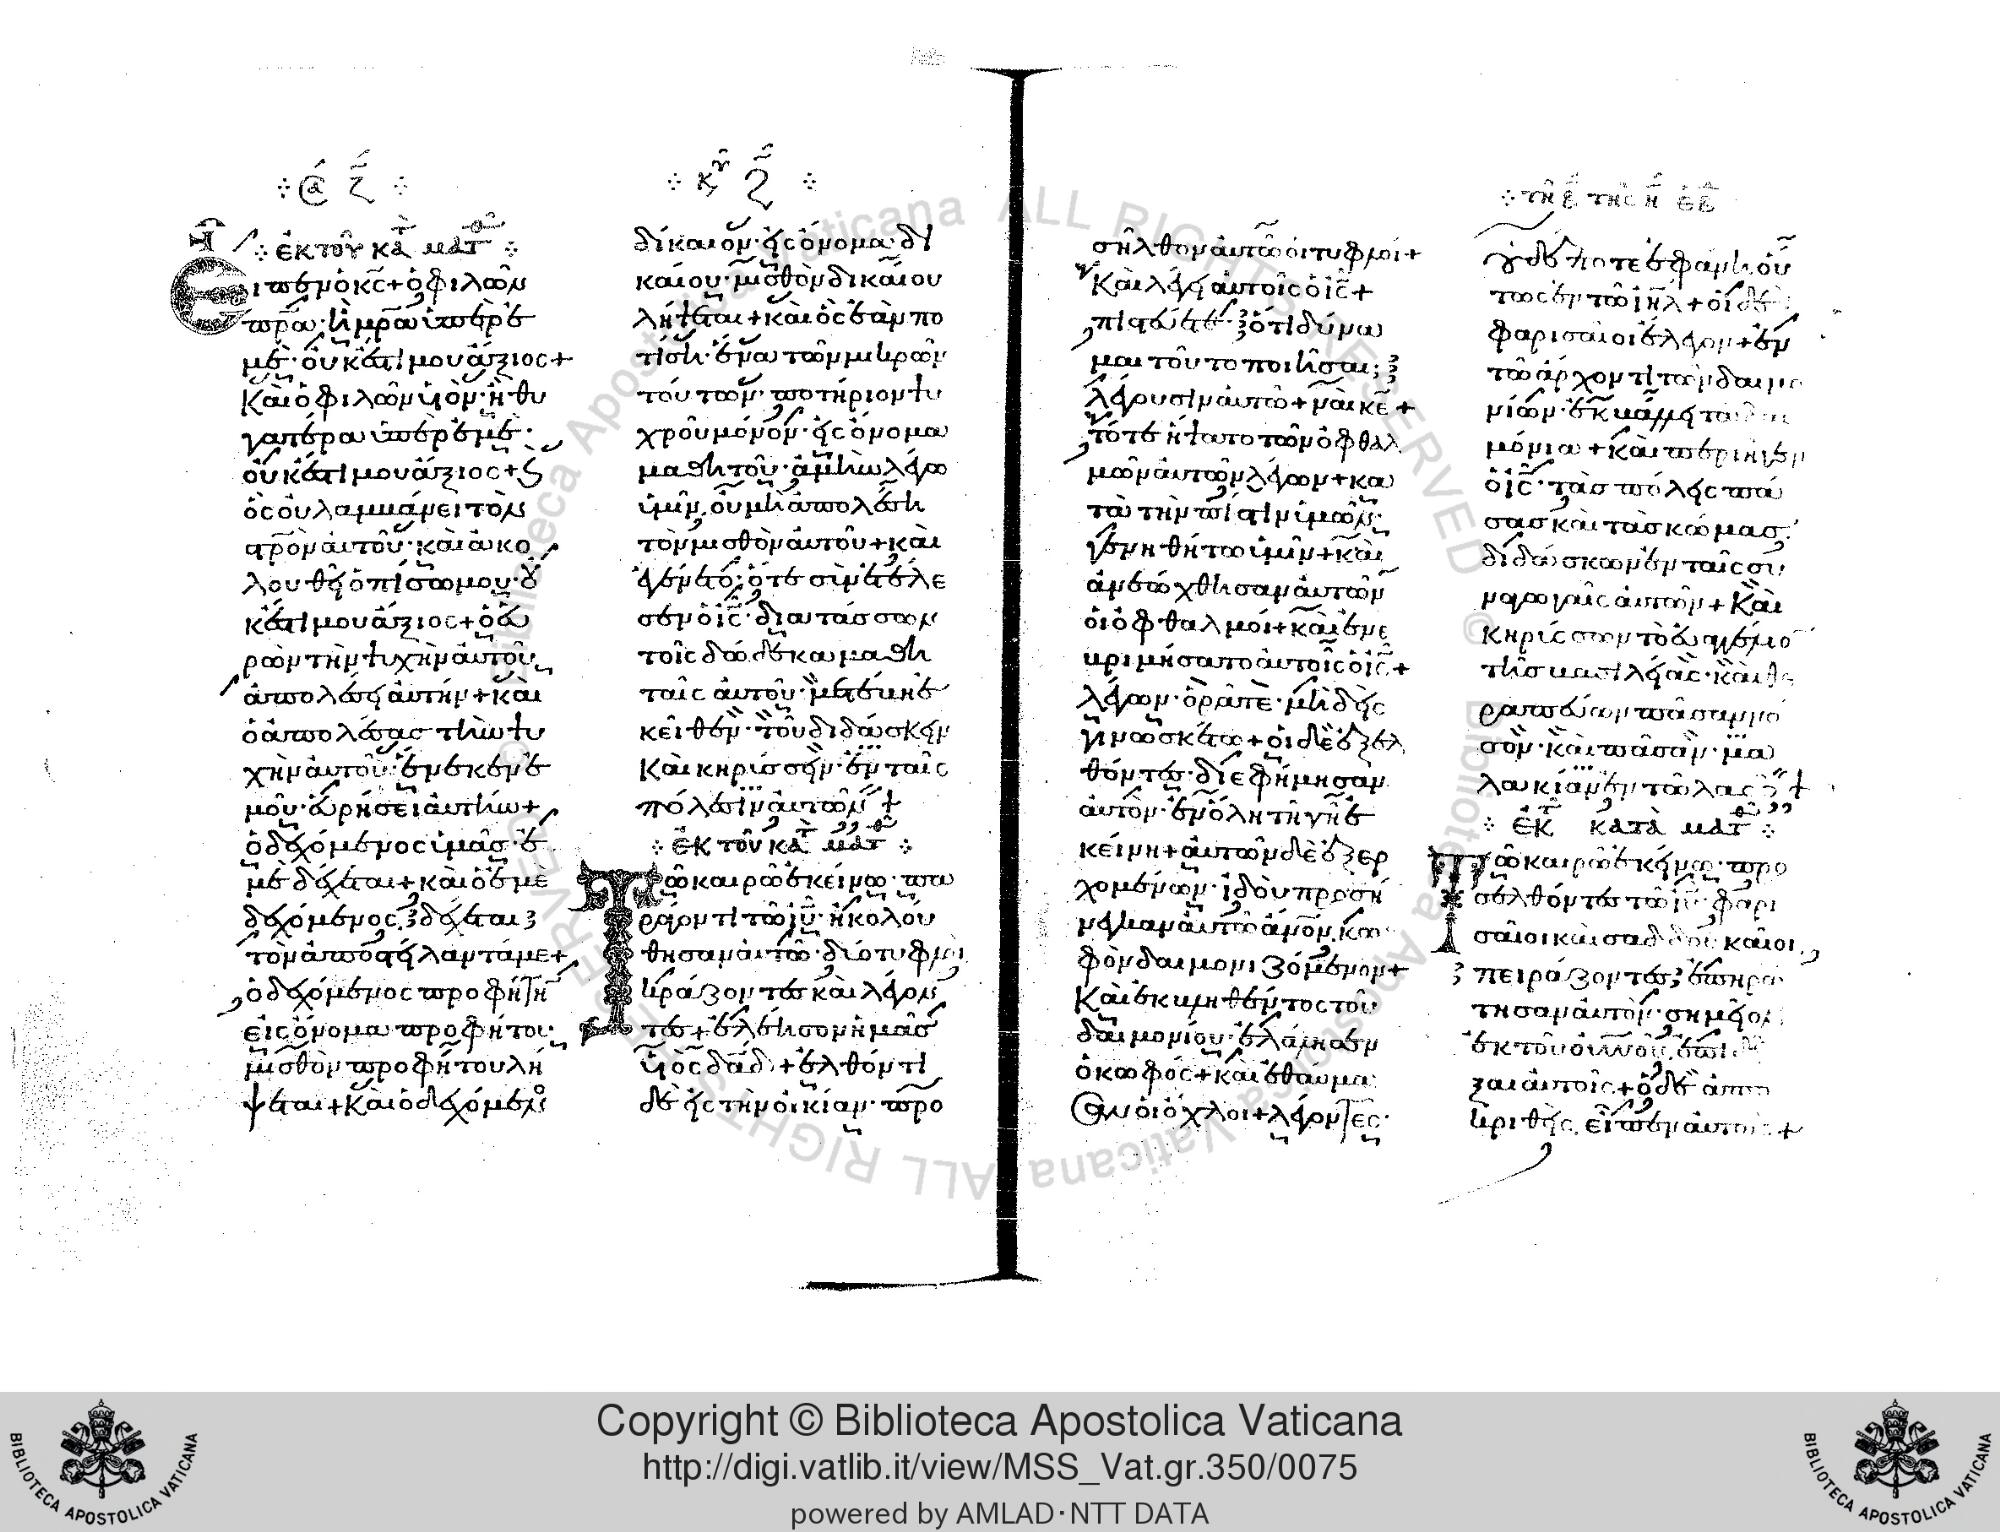 ἐκ τοῦ κατ ματθ
Εἶπεν ὁ κς + ὁ φιλῶν
πρα· ἢ μρα ὑπὲρ ἐ
μὲ· οὐκ ἔστι μου ἄξιος +
Καὶ ὁ φιλῶν υἱὸν· ἢ θυ
γατέρα ὑπὲρ ἐμὲ·
οὐκ ἔστι μου ἄξιος + κ
ὃς οὐ λαμβάνει τὸν
στρον αὐτοῦ· καὶ ἀκο
λουθεῖ ὀπίσω μου· οὐ
κἔστι μου ἄξιος + ὁ εὑ
ρὼν τὴν ψυχὴν αὐτοῦ
ἀπολέσει αὐτήν + καὶ
ὁ ἀπολέσας τὴν ψυ
χὴν αὐτοῦ· ἕνεκεν ἐ
μοῦ· εὑρήσει αὐτήν +
ὁ δεχόμενος ὑμᾶς· ἐ
μὲ δέχεται + καὶ ὁ ἐμὲ
δεχόμενος δέχεται
τὸν ἀποστείλαντά με +
ὁ δεχόμενος προφήτην
εἰς ὄνομα προφήτου·
μισθὸν προφήτου λή
ψεται + Καὶ ὁ δεχόμενος
δίκαιον· εἰς ὄνομα δι
καίου· μισθὸν δικαίου
λήψεται + καὶ ὃς ἐὰν πο
τίσῃ· ἕνα τῶν μικρῶν
τούτων· ποτήριον ψυ
χροῦ μόνον· εἰς ὄνομα
μαθητοῦ· ἀμὴν λέγω
ὑμῖν, οὐ μὴ ἀπολέσῃ
τὸν μισθὸν αὐτοῦ + καὶ
ἐγένετο· ὅτε συνετέλε
σεν ὁ ις· διατάσσων
τοῖς δώδεκα μαθη
ταῖς αὐτοῦ· μετέβη ἐ
κεῖθεν· τοῦ διδάσκειν
Καὶ κηρύσσειν· ἐν ταῖς
πόλεσιν αὐτῶν +
ἐκ τοῦ κατ ματθ
Τῶ καιρῶ ἐκείνω· πα
ράγοντι τῶ ιυ· ἠκολού
θησαν αὐτῶ· δύο τυφλοὶ
κράζοντες καὶ λέγον
τες + ἐλέησον ἡμᾶς
υἱὸς δαδ + ἐλθόντι
δὲ εἰς τὴν οἰκίαν· προ
σῆλθον αὐτῶ οἱ τυφλοί +
Καὶ λέγει αὐτοῖς ὁ ις +
πιστεύετε· ὅτι δύνα
μαι τοῦτο ποιῆσαι;
λέγουσιν αὐτῶ + ναὶ κε +
τότε ἥψατο τῶν ὀφθαλ
μῶν αὐτῶν λέγων + κα
τὰ τὴν πίστιν ὑμῶν·
γενηθήτω ὑμῖν + καὶ
ἀνεώχθησαν αὐτῶν
οἱ ὀφθαλμοί + καὶ ἐνε
βριμήσατο αὐτοῖς ὁ ις +
λέγων· ὁρᾶτε· μηδεὶς
γινωσκέτω + οἱ δὲ ἐξελ
θόντες· διεφήμησαν
αὐτὸν· ἐν ὅλη τῆ γῆ ἐ
κείνη + αὐτῶν δὲ ἐξερ
χομένων· ἰδοὺ προσή
νεγκαν αὐτῶ ανον, κω
φὸν δαιμονιζόμενον +
Καὶ ἐκβληθέντος τοῦ
δαιμονίου· ἐλάλησεν
ὁ κωφός + καὶ ἐθαύμα
σαν οἱ ὄχλοι + λέγοντες·
οὐδέποτε ἐφάνη οὕ
τως ἐν τῶ ιηλ + οἱ δὲ
φαρισαῖοι ἔλεγον + ἐν
τῶ ἄρχοντι τῶν δαιμο
νίων· ἐκβάλλει τὰ δαι
μόνια + Καὶ περιῆγεν
ὁ ις· τὰς πόλεις πά
σας καὶ τὰς κώμας·
διδάσκων ἐν ταῖς συ
ναγωγαῖς αὐτῶν + Καὶ
κηρύσσων τὸ εὐαγγέλιον
τῆς βασιλείας· καὶ θε
ραπεύων πᾶσαν νό
σον· καὶ πᾶσαν· μα
λακίαν ἐν τῶ λαῶ +
ἐκ τ κατὰ ματθ
Τῶ καιρῶ ἐκείνω· προ
σελθόντες τῶ ιυ· φαρι
σαῖοι καὶ σαδδουκαῖοι
πειράζοντες· ἐπηρώ
τησαν αὐτὸν· σημεῖον
ἐκ τοῦ οὐνου, ἐπιδεῖ
ξαι αὐτοῖς + ὁ δὲ ἀπο
κριθεὶς, εἶπεν αὐτοῖς +
Copyright © Biblioteca Apostolica Vaticana
http://digi.vatlib.it/view/MSS_Vat.gr.350/0075
powered by AMLAD·NTT DATA
BIBLIOTECA APOSTOLICA VATICANA
BIBLIOTECA APOSTOLICA VATICANA